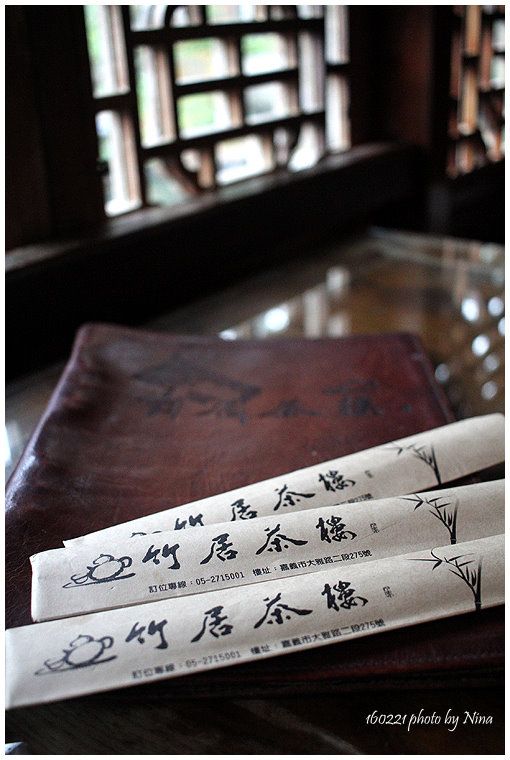 竹居茶樓
竹居茶樓
竹居茶樓
訂位專線：05-2715001 樓址：嘉義市大雅路二段275號
竹居茶樓
訂位專線：05-2715001 樓址：嘉義市大雅路二段275號
160221 photo by Nina